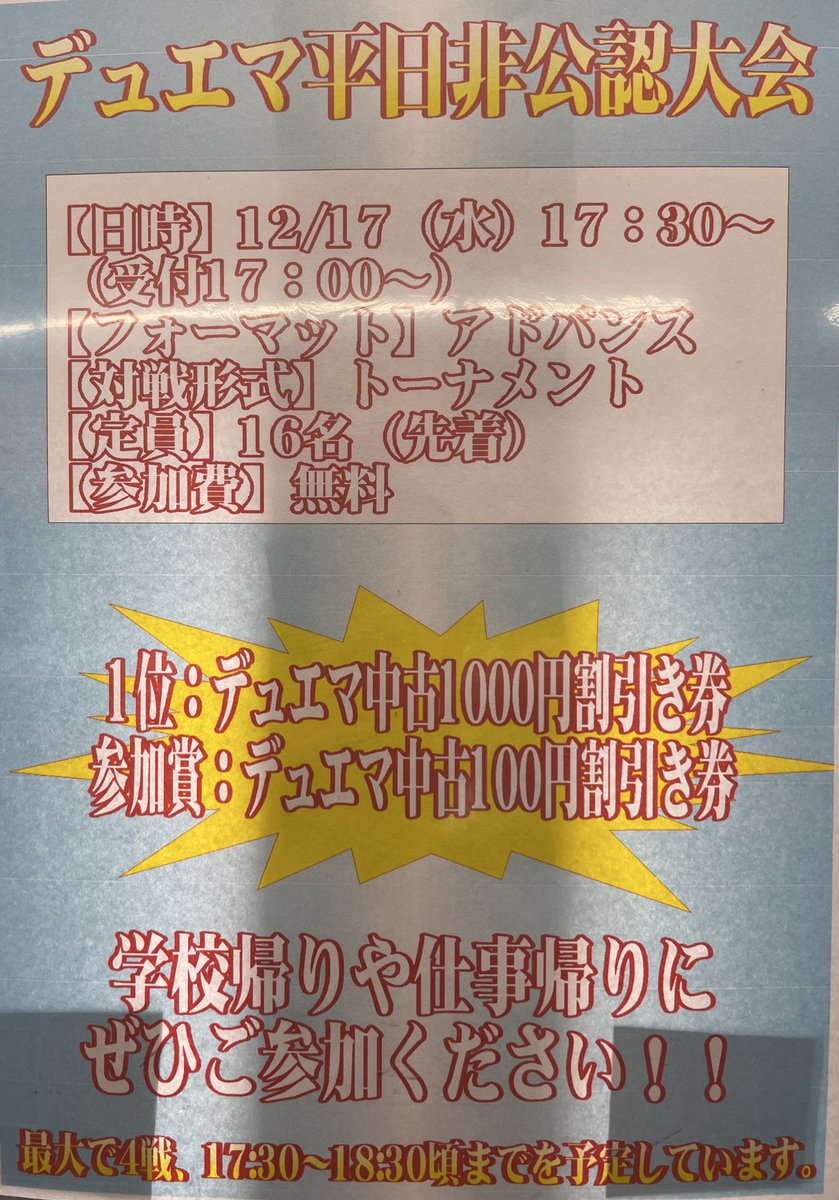 デュエマ平日非公認大会
【日時】12/17（水）17：30～
（受付17：00～）
【フォーマット】アドバンス
【対戦形式】トーナメント
【定員】16名（先着）
【参加費】無料
1位：デュエマ中古1000円割引き券
参加賞：デュエマ中古100円割引き券
学校帰りや仕事帰りに
ぜひご参加ください！！
最大で4戦、17:30～18:30頃までを予定しています。